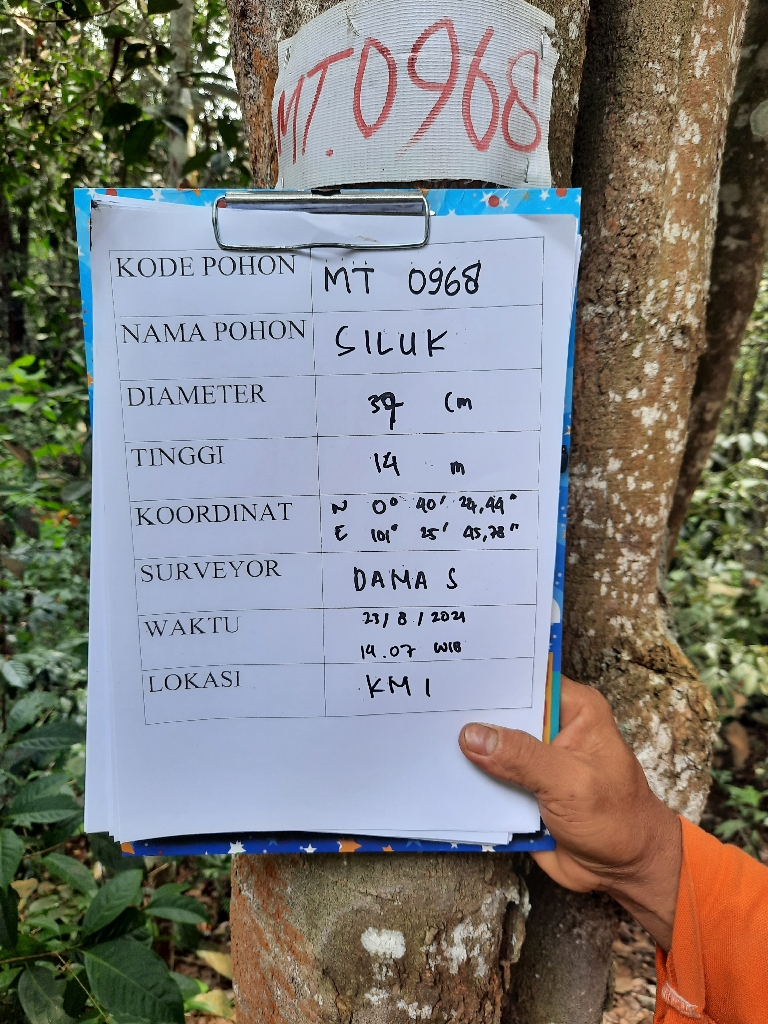 MT.0968
KODE POHON MT 0968
NAMA POHON SILUK
DIAMETER 37 Cm
TINGGI 14 m
KOORDINAT N 0° 40' 24,44"
E 101° 25' 45,78"
SURVEYOR DAMA S
WAKTU 23/8/2021
14.07 WIB
LOKASI KM 1